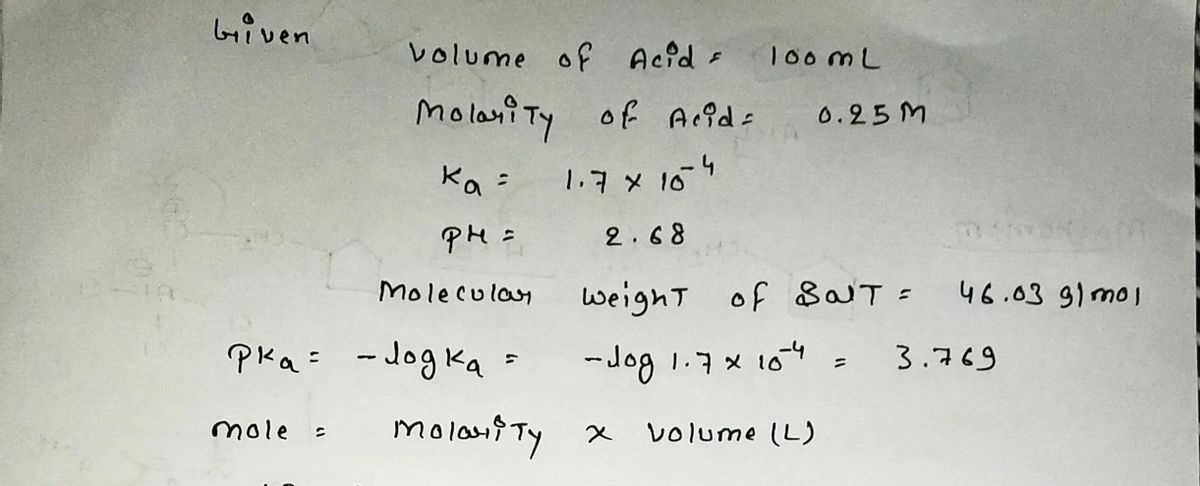 Given
Volume of Acid = 100 mL
Molarity of Acid = 0.25 M
Ka = 1.7 x 10^-4
PH = 2.68
Molecular weight of Salt = 46.03 g/mol
Pka = -log ka = -log 1.7 x 10^-4 = 3.769
mole = Molarity x volume (L)